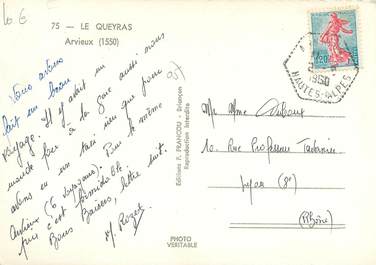 10 €
75 - LE QUEYRAS
Arvieux (1550)
05
Nous avons
fait un beau
voyage. Il y avait un
monde fou à la gare aussi nous
avons eu un taxi rien que pour
Arvieux (6 voyageurs). Pour le même
prix c'est formidable.
Bons Baisers, lettre suit.
Editions F. FRANCOU - Briançon
Reproduction Interdite
PHOTO
VERITABLE
0,20
1960
HAUTES-ALPES
Mr Mme
10. Rue Professeur
Lyon (8e)
(Rhône)